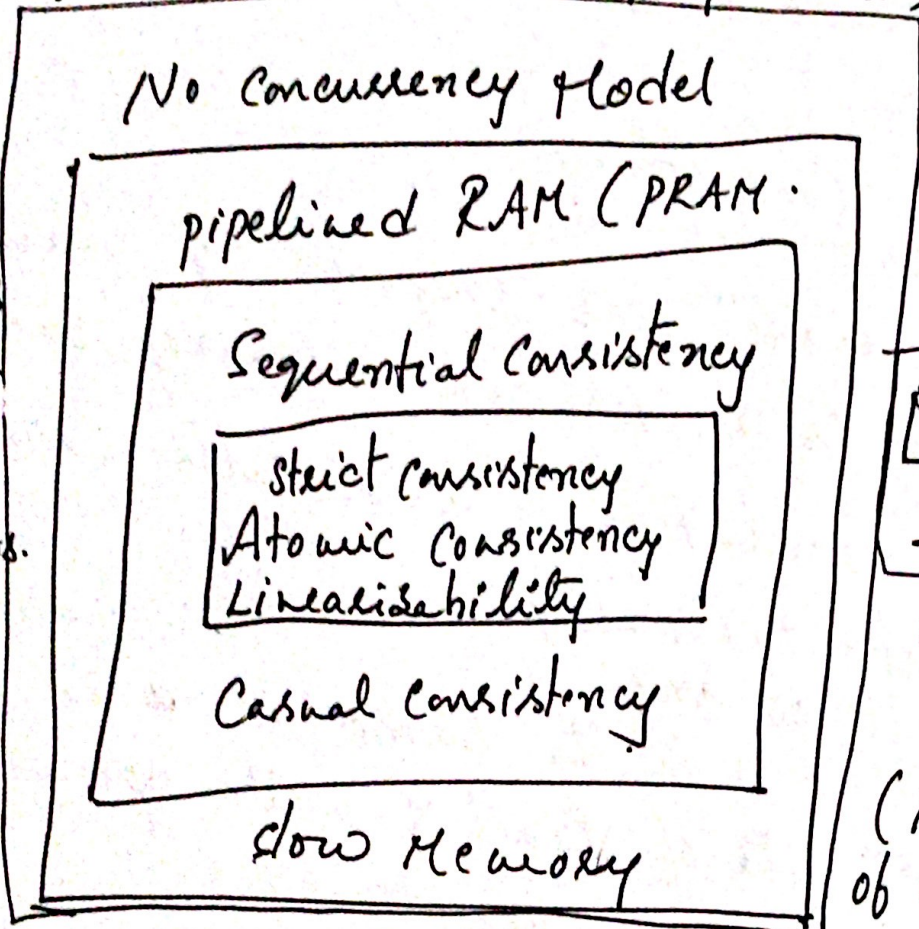 No Concurrency Model
pipelined RAM (PRAM.
Sequential Consistency
Strict Consistency
Atomic Consistency
Linearisability
Casual Consistency
Slow Memory
s.
(
of